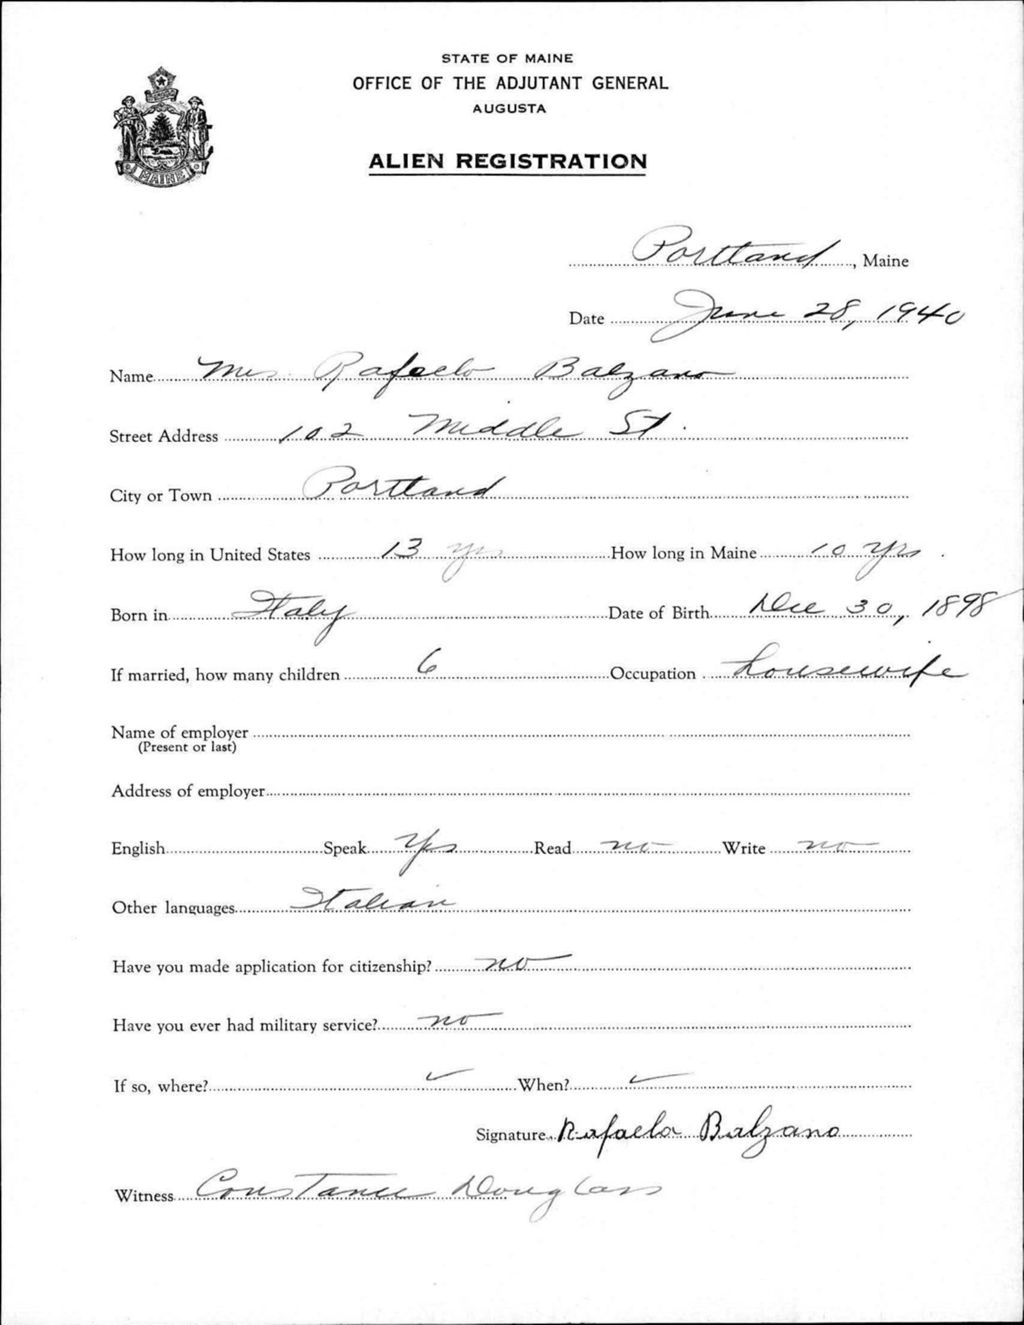 STATE OF MAINE
OFFICE OF THE ADJUTANT GENERAL
AUGUSTA
MAINE
ALIEN REGISTRATION
Portland, Maine
Date June 28, 1940
Name Mrs. Rafaelo Balzano
Street Address 102 Middle St.
City or Town Portland
How long in United States 13 yrs How long in Maine 10 yrs.
Born in Italy Date of Birth Dec 30, 1898
If married, how many children 6 Occupation housewife
Name of employer
(Present or last)
Address of employer
English Speak Yes Read no Write no
Other languages Italian
Have you made application for citizenship? no
Have you ever had military service? no
If so, where? ✓ When? ✓
Signature Rafaela Balzano
Witness Constance Douglass